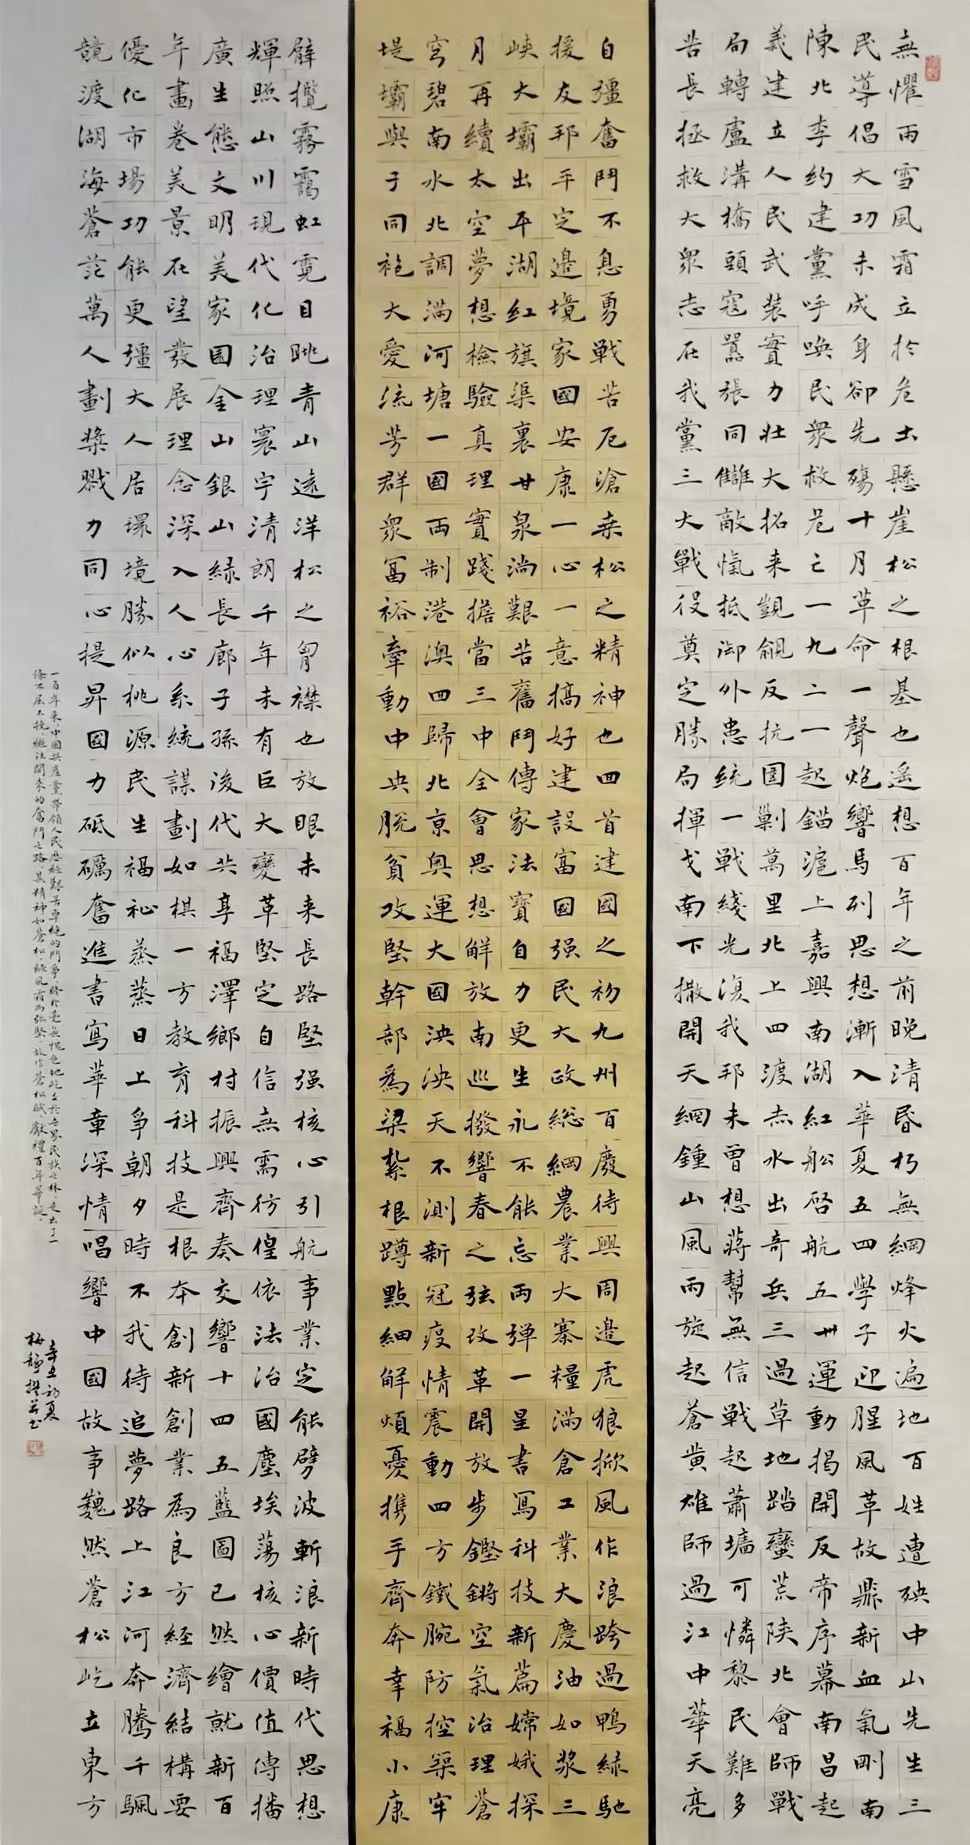 無懼雨雪風霜立於危土懸崖松之根基也遥想百年之前晚清昏朽無綱烽火遍地百姓遭殃中山先生三
民導倡大功未成身卻先殤十月革命一聲炮響馬列思想漸入華夏五四學子迎腥風革故鼎新血氣剛南
陳北李約建黨呼唤民衆救危亡一九二一起錨滬上嘉興南湖紅船启航五卅運動揭開反帝序幕南昌起
義建立人民武装實力壮大拓来觀覦反抗圍剿萬里北上四渡赤水出奇兵三過草地踏蠻荒陕北會師戰
局轉盧溝橋頭寇囂張同讎敵愾抵御外患統一戰綫光復我邦未曾想蔣幫無信戰起蕭墻可憐黎民難多
苦長拯救大眾志在我黨三大戰役奠定勝局揮戈南下撒開天網鍾山風雨旋起蒼黄雄師過江中華天亮
自彊奮鬥不息勇戰苦厄滄桒松之精神也回首建國之初九州百廢待興周邉虎狼掀風作浪跨過鴨緑馳
援友邦平定邉境家國安康一心一意搞好建設富国强民大政總綱農業大寨糧滿倉工業大慶油如漿三
峡大壩出平湖红旗渠裏甘泉淌艱苦奮鬥傳家法寶自力更生永不能忘兩弹一星書寫科技新篇嫦娥探
月再續太空夢想檢驗真理實踐擔當三中全會思想解放南巡撥響春之弦改革開放步鏗鏘空氣治理蒼
穹碧南水北調滿河塘一國兩制港澳四歸北京奥運大國泱泱天不測新冠疫情震動四方鐵腕防控築牢
堤壩與子同袍大爱流芳群衆冨裕牽動中央脱貧攻堅幹部為梁紮根蹲點細解煩憂携手齊奔幸福小康
臂攬霧靄虹霓目眺青山遠洋松之胷襟也放眼未来長路堅强核心引航事業定能劈波斬浪新時代思想
輝照山川現代化治理寰宇清朗千年未有巨大變革堅定自信無需彷徨依法治國塵埃蕩核心價值傳播
廣生態文明美家園金山銀山緑長廊子孫後代共享福澤鄉村振興齊奏交響十四五藍圖已然繪就新百
年畫卷美景在望發展理念深入人心系統謀劃如棋一方教育科技是根本創新創業為良方經濟結構要
優化市場功能更彊大人居環境勝似桃源民生福祉蒸蒸日上爭朝夕時不我待追夢路上江河奔騰千騆
競渡湖海蒼茫萬人劃槳戮力同心提昇國力砥礪奮進書寫華章深情唱響中國故事巍然蒼松屹立東方
一百年来中國共産黨带領人民歷經艱苦卓絶的鬥爭終於毫無愧色地屹立於世界民族之林走出了一
條不屈不撓繼往開来的奮鬥之路其精神如蒼松經風霜而弥堅故作蒼松賦獻禮百年華誕
辛丑初夏
梅静撰并书